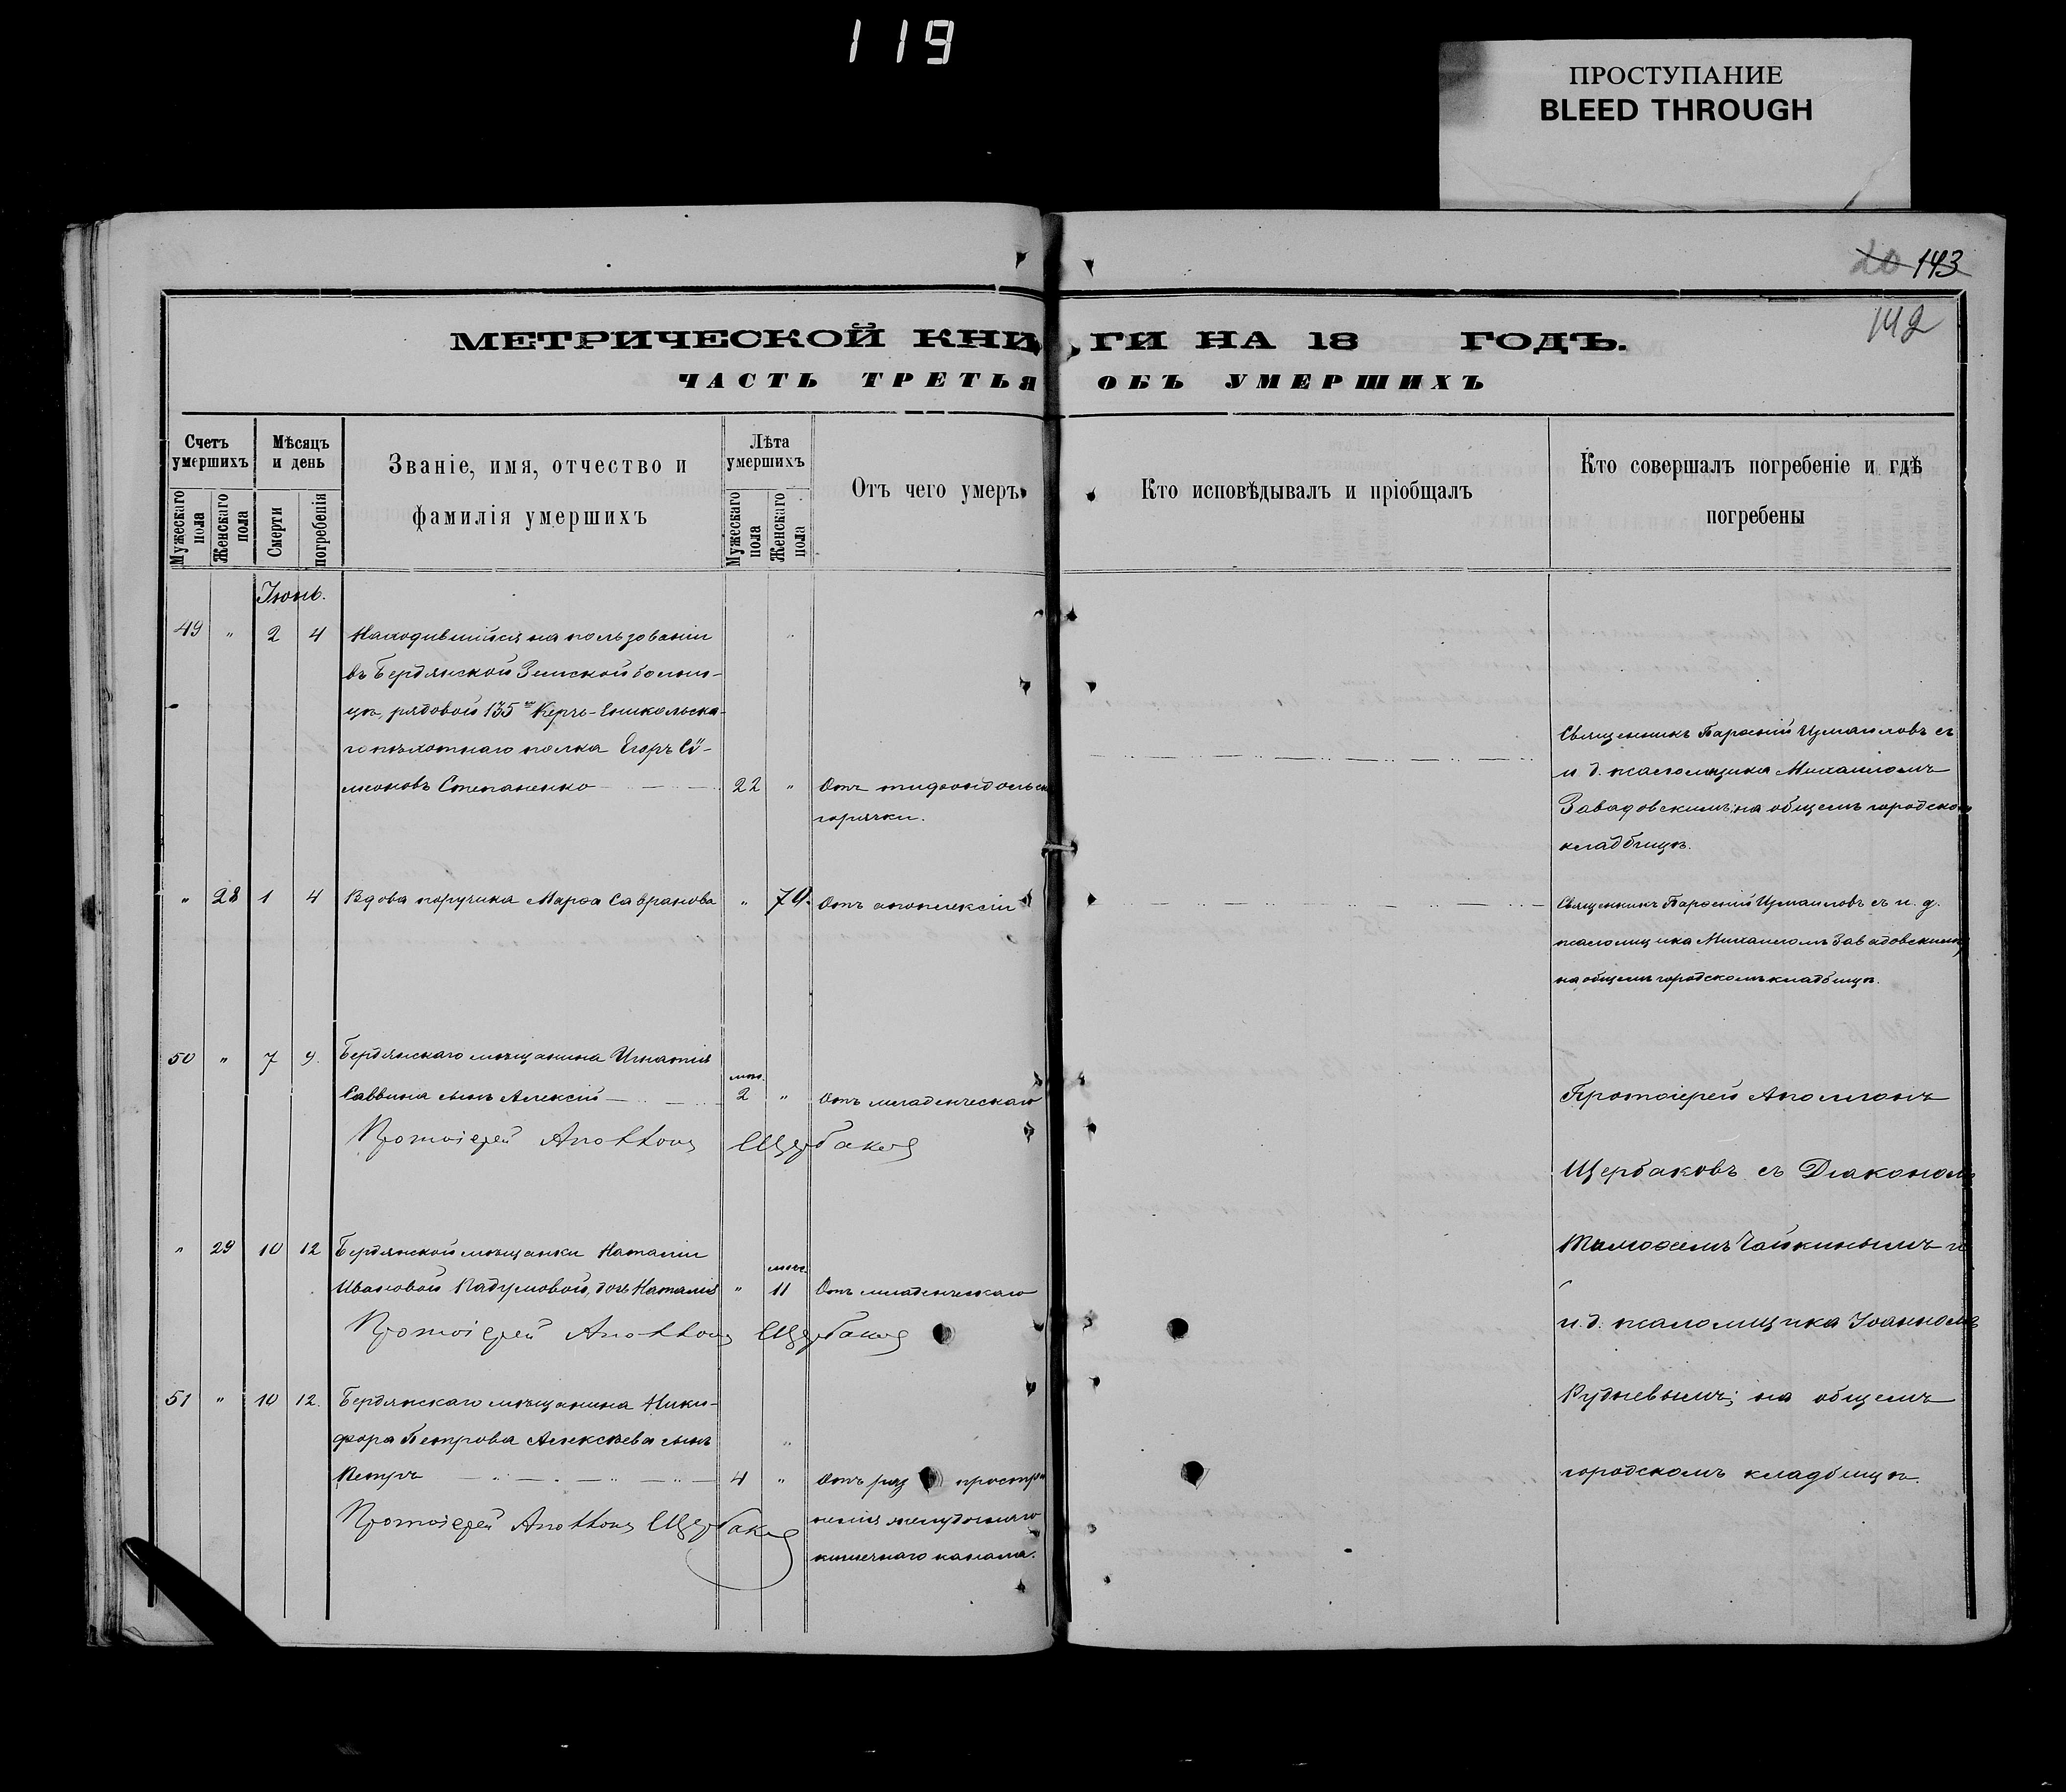 119
ПРОСТУПАНИЕ
BLEED THROUGH
20 143
142
МЕТРИЧЕСКОЙ КНИГИ НА 18 ГОДЪ.
ЧАСТЬ ТРЕТЬЯ ОБЪ УМЕРШИХЪ
Счетъ умершихъ
Мужескаго пола
Женскаго пола
Мѣсяцъ и день
Смерти
погребенія
Званіе, имя, отчество и фамилія умершихъ
Лѣта умершихъ
Мужескаго пола
Женскаго пола
Отъ чего умеръ
Кто исповѣдывалъ и пріобщалъ
Кто совершалъ погребеніе и гдѣ погребены
Іюнь.
49 " 2 4 Находившійся на пользованіи
въ Бердянской Земской больни-
цѣ, рядовой 135го Керчь-Еникольска-
го пѣхотнаго полка Егоръ Си-
моновъ Степаненко 22 " Отъ
горячки.
Священникъ Парѳеній Измаиловъ съ
и. д. псаломщика Михаиломъ
Завадовскимъ; на общемъ городском
кладбищѣ.
" 28 1 4 Вдова поручика Марѳа Савранова " 79. Отъ апоплексіи
Священникъ Парѳеній Измаиловъ съ и. д.
псаломщика Михаиломъ Завадовскимъ;
на общемъ городскомъ кладбищѣ.
50 " 7 9. Бердянскаго мѣщанина Игнатія
Саввина сынъ Алексій мѣс. 2 " Отъ младенческаго
Протоіерей Аполлонъ Щербаковъ
" 29 10 12 Бердянской мѣщанки Наталіи
Ивановой дочь Наталія " мѣс. 11 Отъ младенческаго
Протоіерей Аполлонъ Щербаковъ
51 " 10 12. Бердянскаго мѣщанина Ники-
фора Петрова Алексѣева сынъ
Петръ 4 " Отъ
желудочнаго
кишечнаго канала.
Протоіерей Аполлонъ Щербаковъ
Протоіерей Аполлонъ
Щербаковъ съ Діакономъ
Тимоѳеемъ Чайкинымъ и
и. д. псаломщика Іоанномъ
Рудневымъ; на общемъ
городскомъ кладбищѣ.